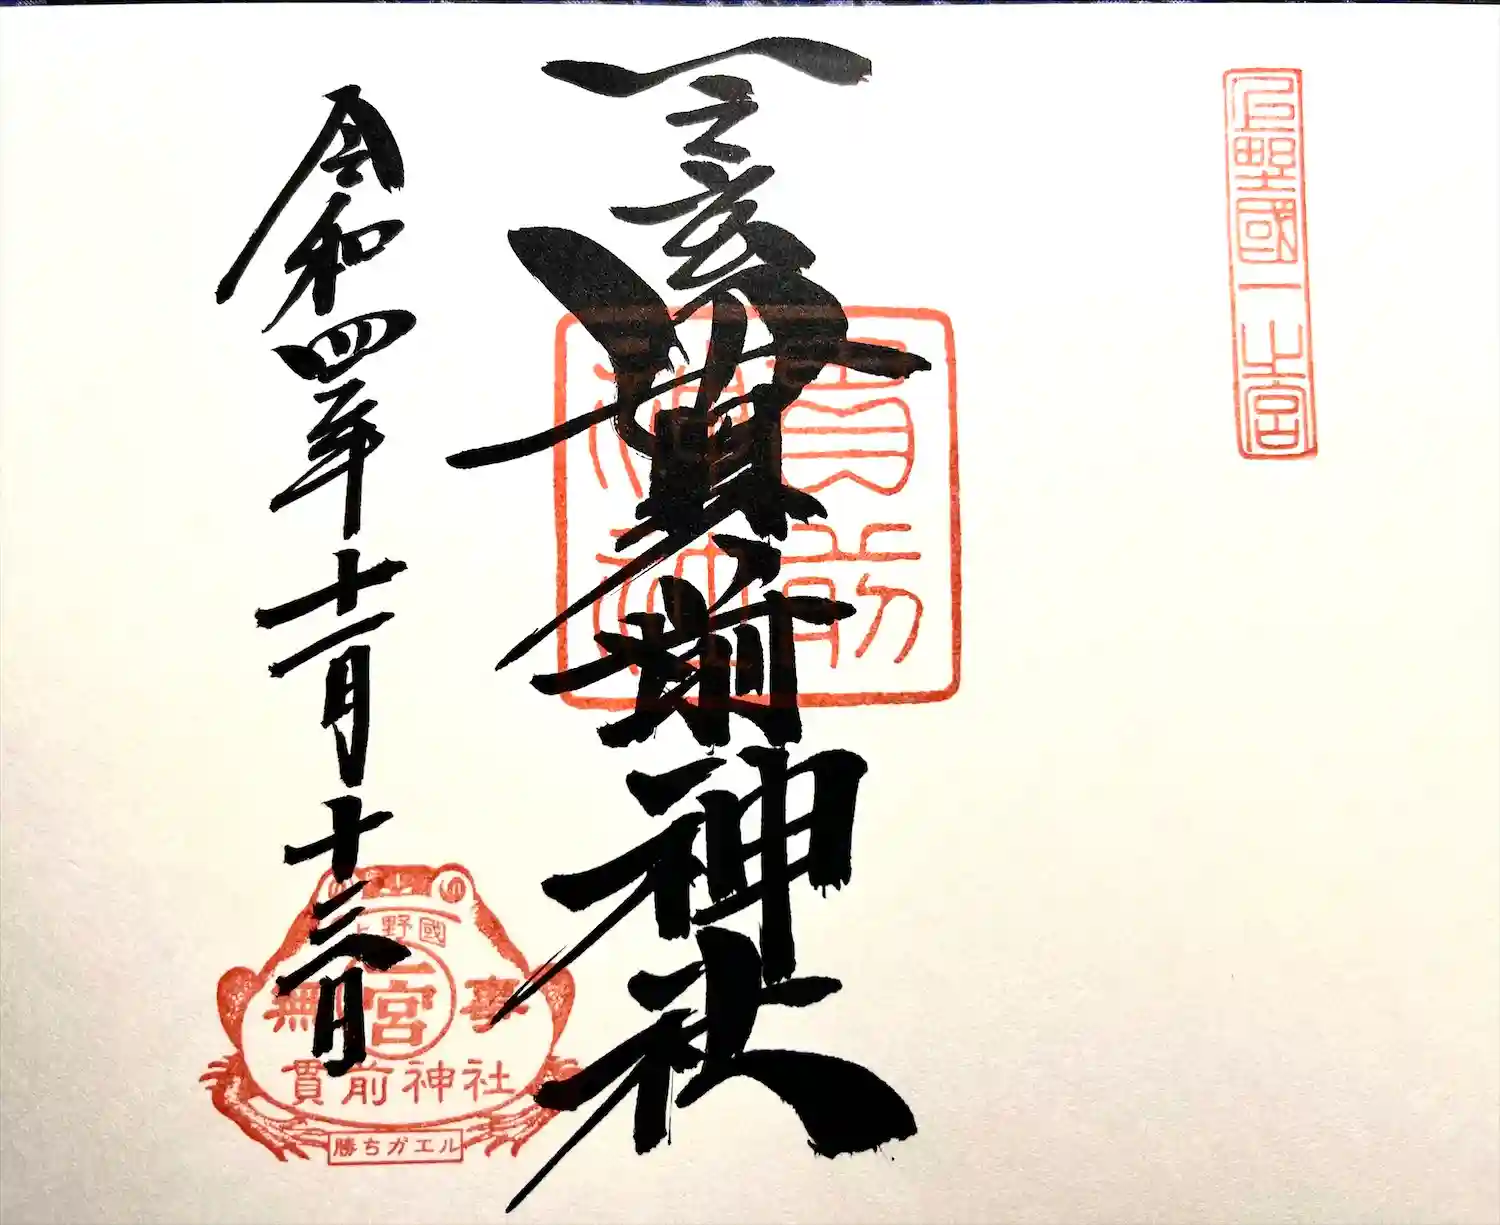 上野國一之宮
一之宮貫前神社
貫前
神社
令和四年十一月十三日
上野國
無一宮事
貫前神社
勝ちガエル